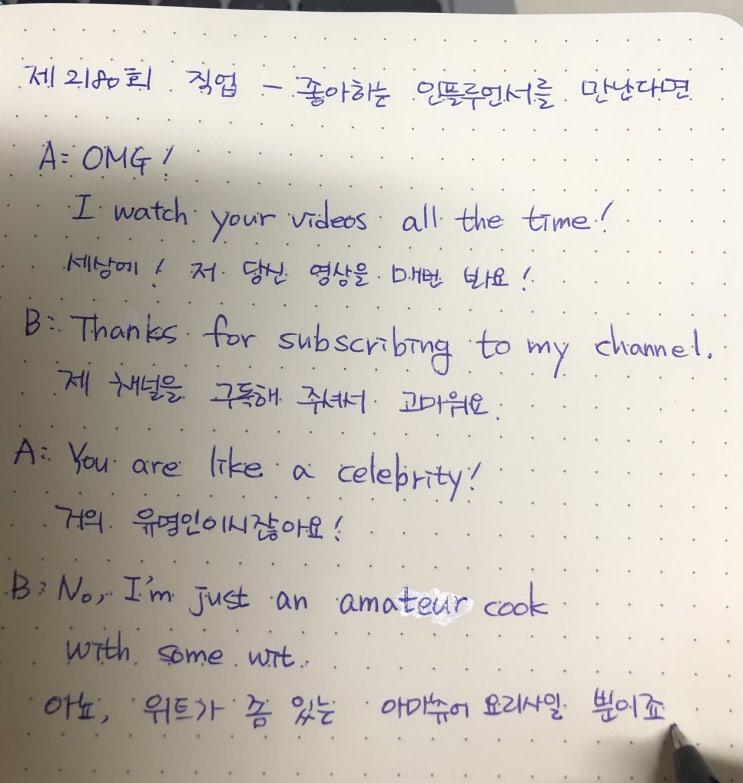 제2180회 직업 - 좋아하는 인플루언서를 만난다면
A: OMG!
I watch your videos all the time!
세상에! 저 당신 영상을 매번 봐요!
B: Thanks for subscribing to my channel.
제 채널을 구독해 주셔서 고마워요.
A: You are like a celebrity!
거의 유명인이시잖아요!
B: No, I'm just an amateur cook
with some wit.
아뇨, 위트가 좀 있는 아마츄어 요리사일 뿐이죠